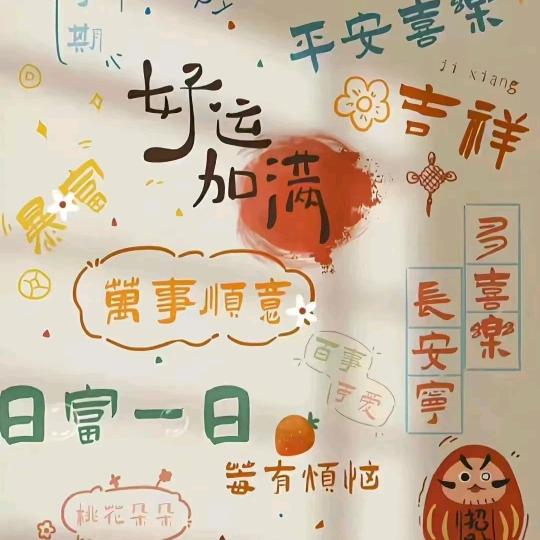 期
平安喜樂
ji xiang
吉祥
好运
加满
暴富
多喜樂
長安寧
萬事順意
百事
可愛
日富一日
莓有煩恼
桃花朵朵
招